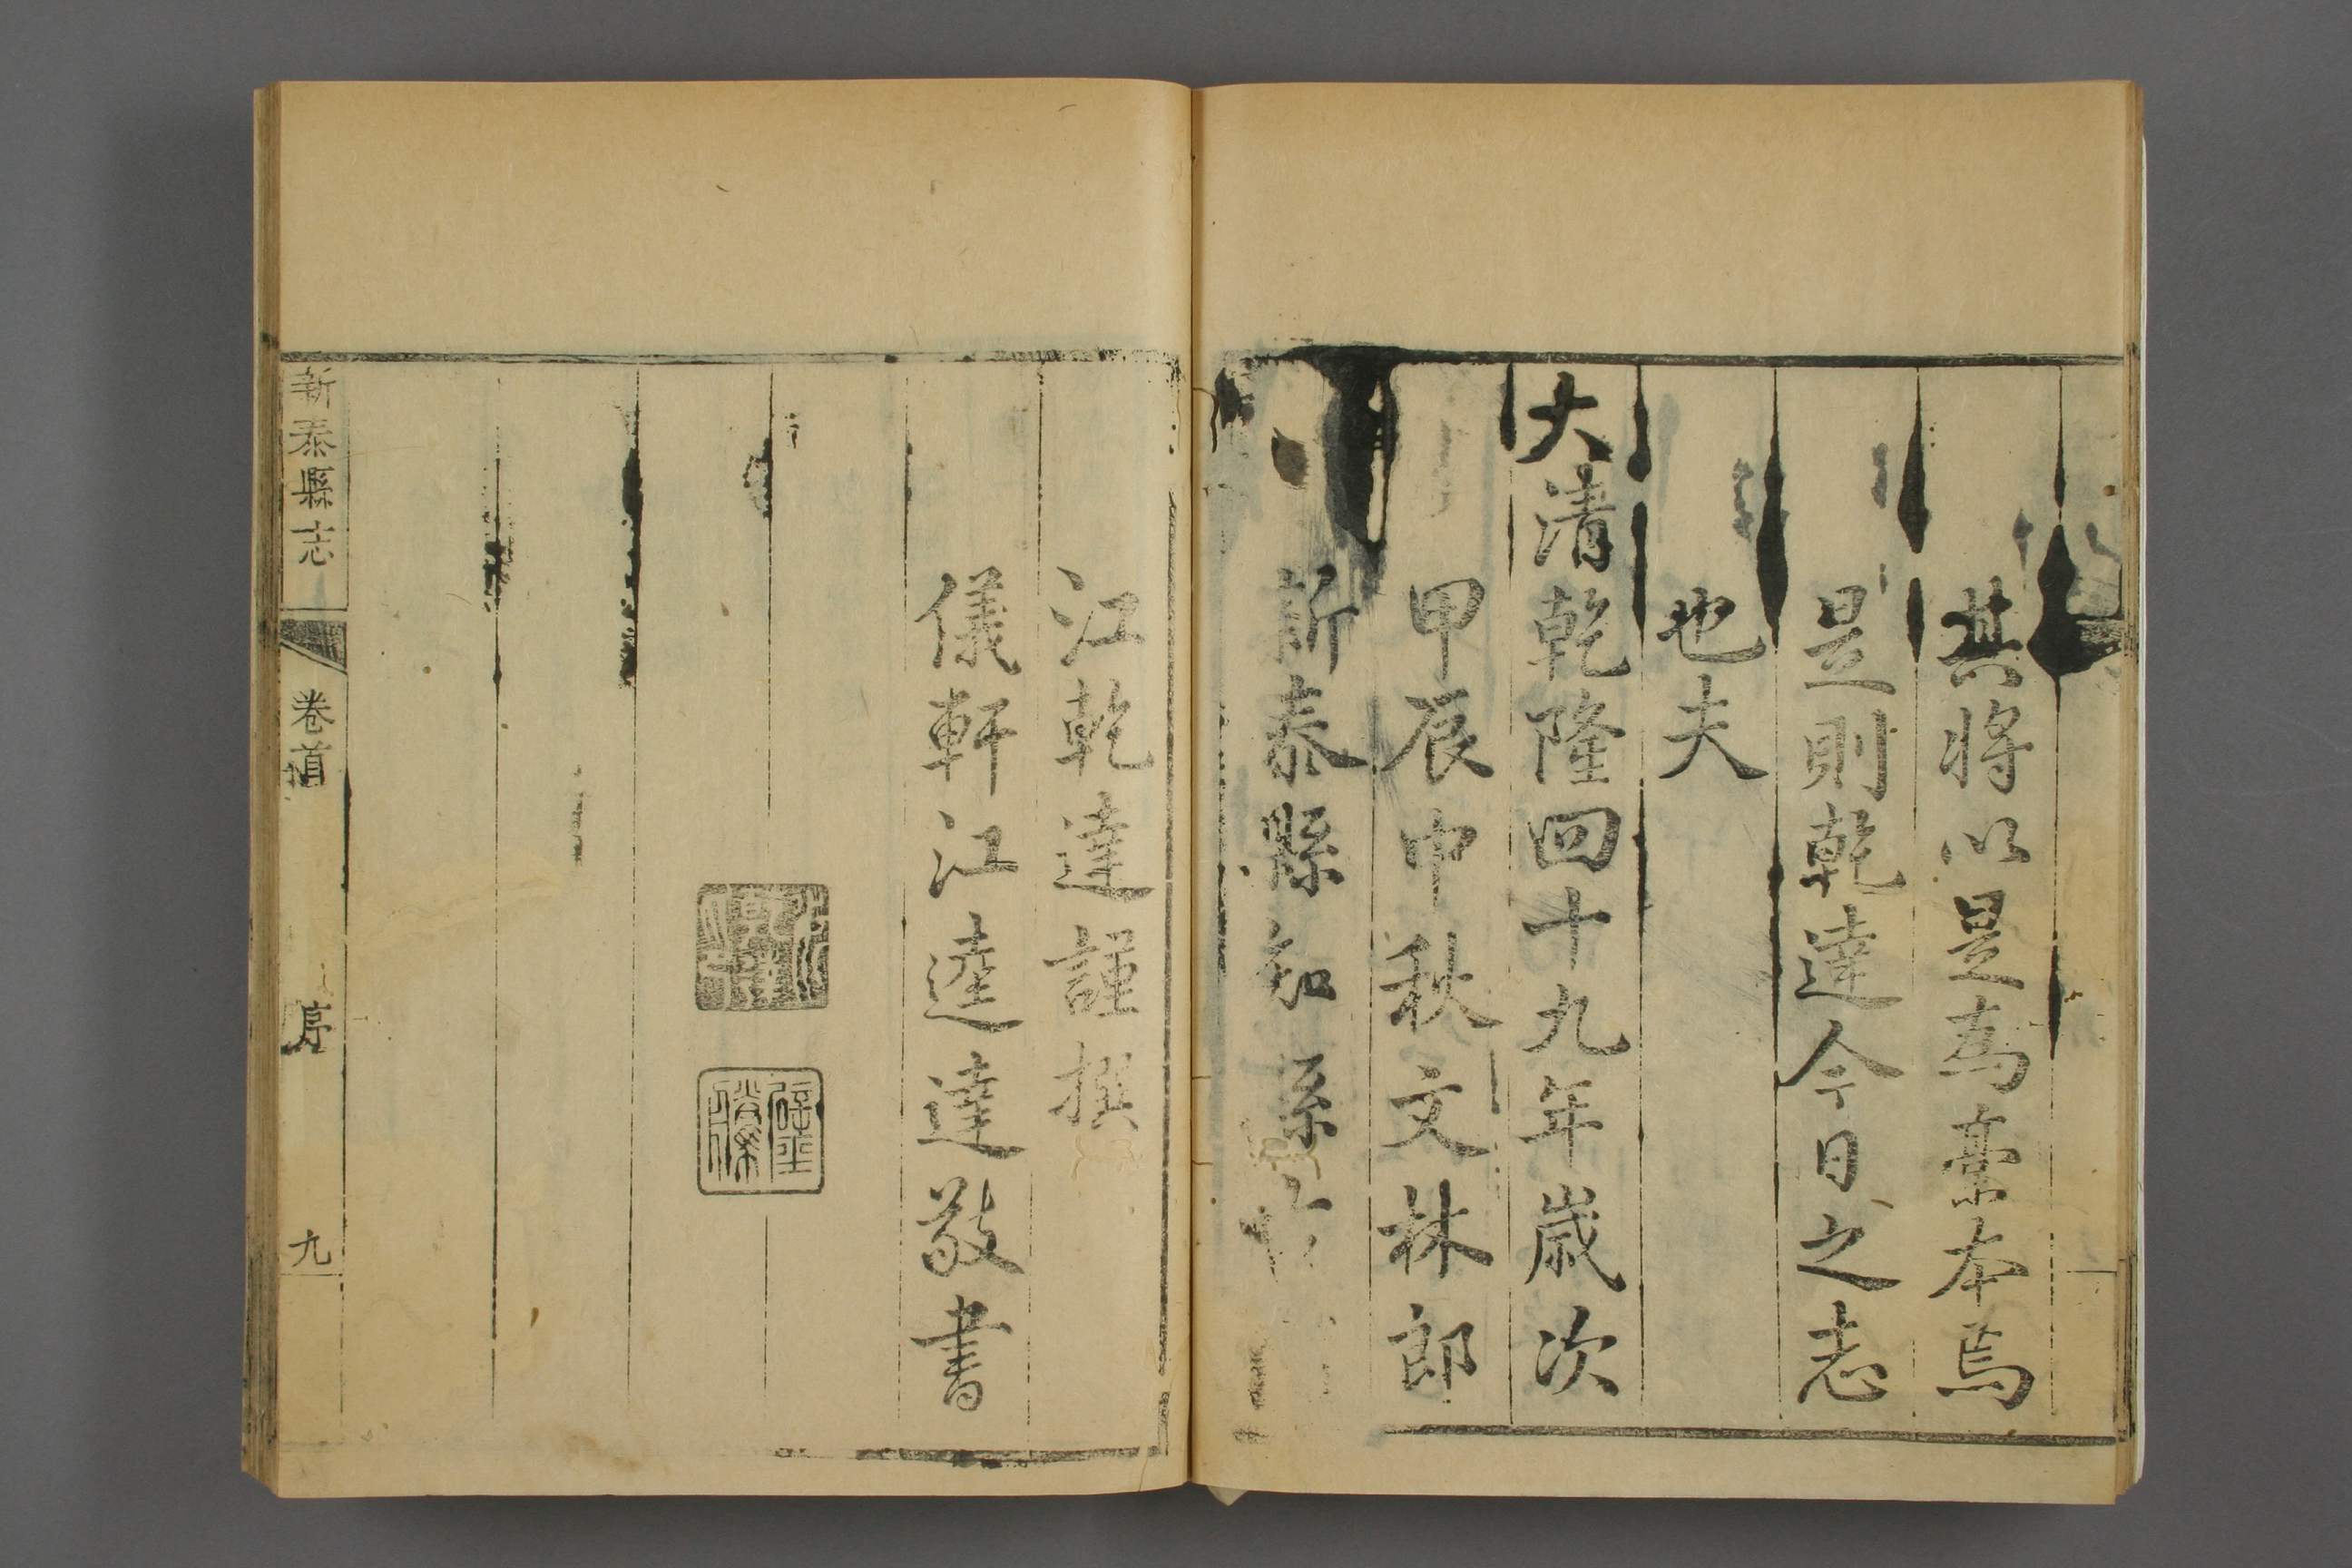 其將以是為藁本焉
是則乾達今日之志
也夫
大清乾隆四十九年歲次
甲辰中秋文林郎
新泰縣知縣
江乾達謹撰
儀軒江達達敬書
新泰縣志
卷首
序
九